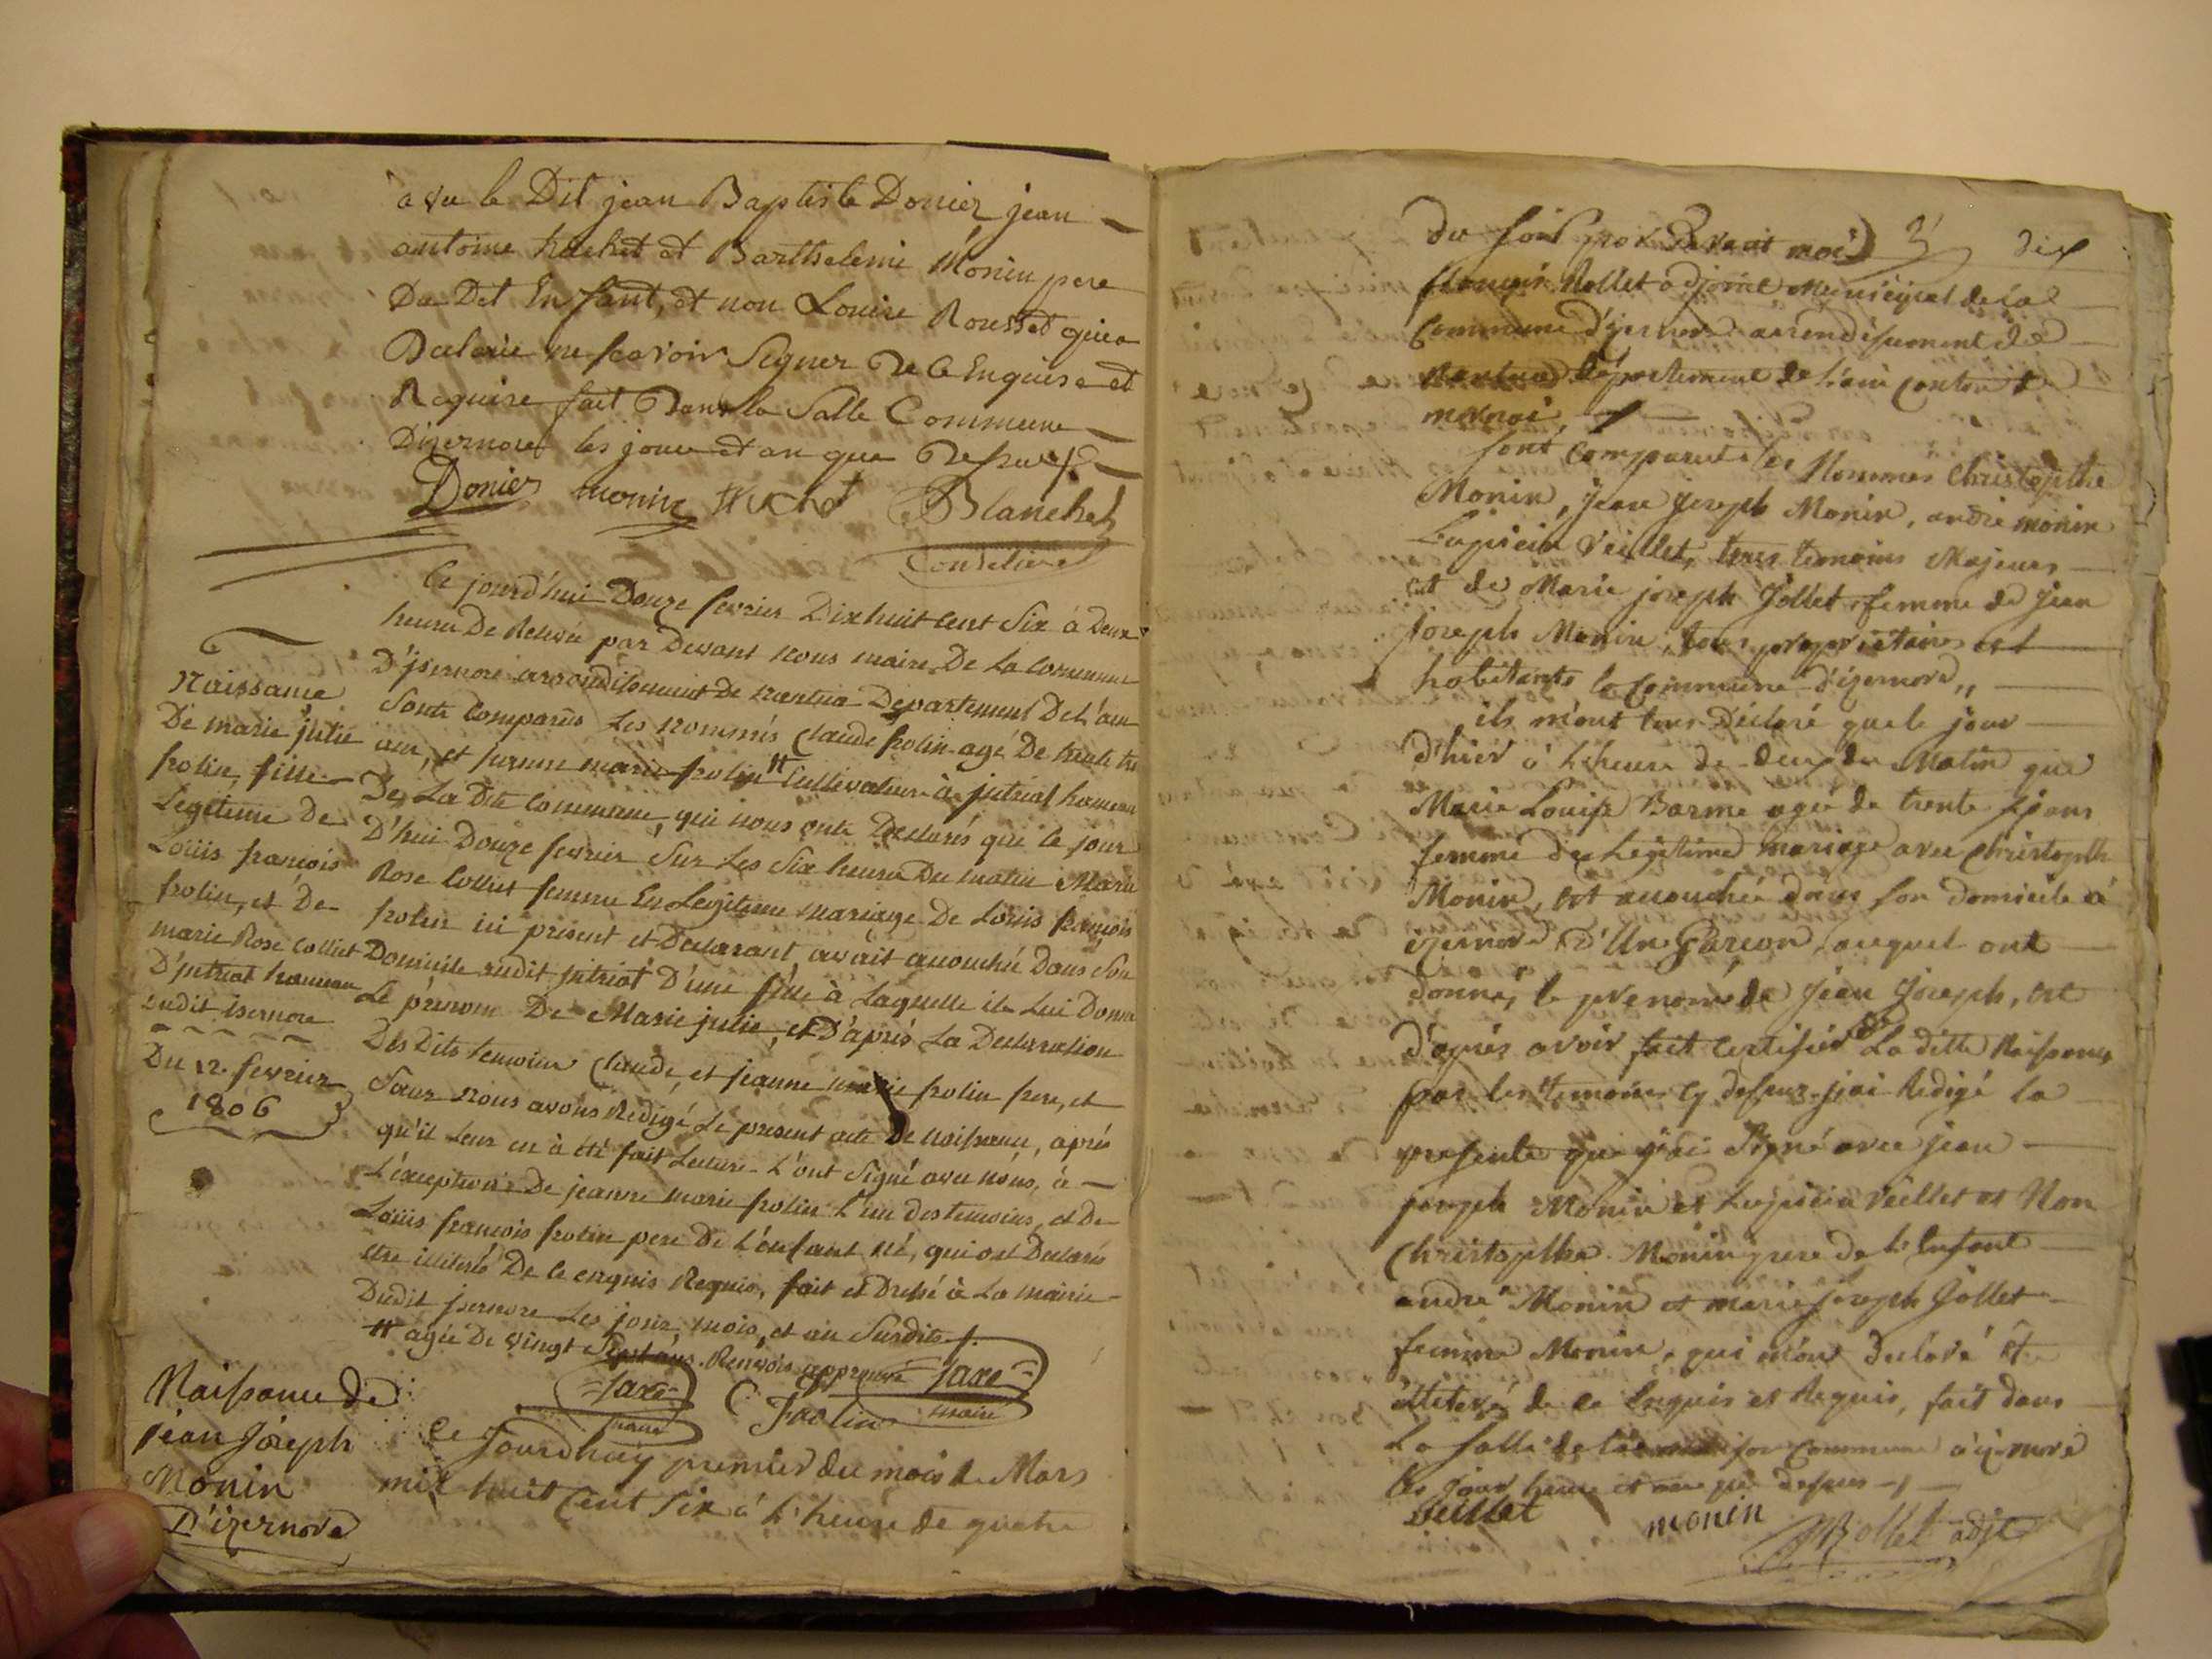 avu le Dit jean Baptiste Donier jean
antoine huchet et Barthelemi Monin pere
Du Det Enfant, et non Louise Rousset quia
Declarée ne scavoir Signer De Ce Enquise et
Requise fait Dans la Salle Commune
Dizernore les jour et an que Dessus
Donier monin Huchet Blanchet
Ce jourd'hui Douze fevrier Dix huit cent Six à Deux
heures De Relevée par Devant nous maire De La Commune
D'jsernore arrondissement De nantua Departement De L'ain
Sonts Comparûs Les nommés Claude frolin agé De trente
ans, et jeanne marie frolin # Cultivateurs à jutriat hameau
De La Dite Commune, qui nous onts Declarés que le jour
D'hui Douze fevrier Sur Les Six heures Du matin Marie
Rose Colliet femme En Legitime mariage De Louis françois
frolin ici présent et Declarant, avait accouchée Dans Son
Domicile audit jutriat D'une fille à Laquelle ils Lui Donna
Le prénom De Marie julie, et D'après La Declaration
Des Dits temoins Claude, et jeanne marie frolin frere, et
Sœur nous avons Redigé Le present acte De naissance, après
qu'il Leur en à été fait Lecture L'ont Signé avec nous, à
L'exception De jeanne marie frolin L'un des temoins, et De
Louis françois frolin pere De L'enfant né, qui ont Declarés
etre illiterés De ce enquis Requis, fait et Dressé à La mairie
Dudit jsernore Les jour, mois, et an Susdits
# agée De vingt Sept ans. Renvoi approuvé
Jaxe Frolin Jaxe
maire maire
Naissance
De marie julie
frolin, fille
Legitime De
Louis françois
frolin, et De
marie Rose Colliet
D'jutriat hameau
dudit isernore
Du 12 fevrier
1806
Naissance de
jean Joseph
Monin
D'izernore
Ce Jourdhuy premier du mois de Mars
mil huit Cent Six à L'heure de quatre
du soir par Devant moi dix
françois Rollet adjoint Municipal de la
Commune d'jzernore arrendissement de
Nantua département de L'ain Canton de
sont Comparut les Nommés Christophe
Monin, jean Joseph Monin, andré monin
Lupicin Veillet, tous temoins Majeurs
et de Marie joseph Jollet femme de jean
Joseph Monin, tous proprietaires et
habitants la Commune d'izernore,,
ils m'ont tous Déclaré que le jour
d'hier à L'heure de deux du Matin que
Marie Louise Barme agée de trente ans
femme du Legitime mariage avec Christoph
Monin, est accouchée dans son domicile à
ezernore D'Un Garcon, auquel ont
donné, le prenom de Jean Joseph, et
d'après avoir fait Certifier La ditte Naissance
par les temoins Cy dessus j'ai Redigé la
presente que j'ai Signé avec jean
joseph Monin et Lupicin Veillet et Non
Christophe Monin pere de L'Enfant
andré Monin et marie joseph Jollet
femme Monin, qui m'ont declaré être
illiteré de ce Enquis et Requis, fait dans
La Salle de la maison Commune à izernore
les jour heure et an que dessus
Veillet monin Rollet adjt